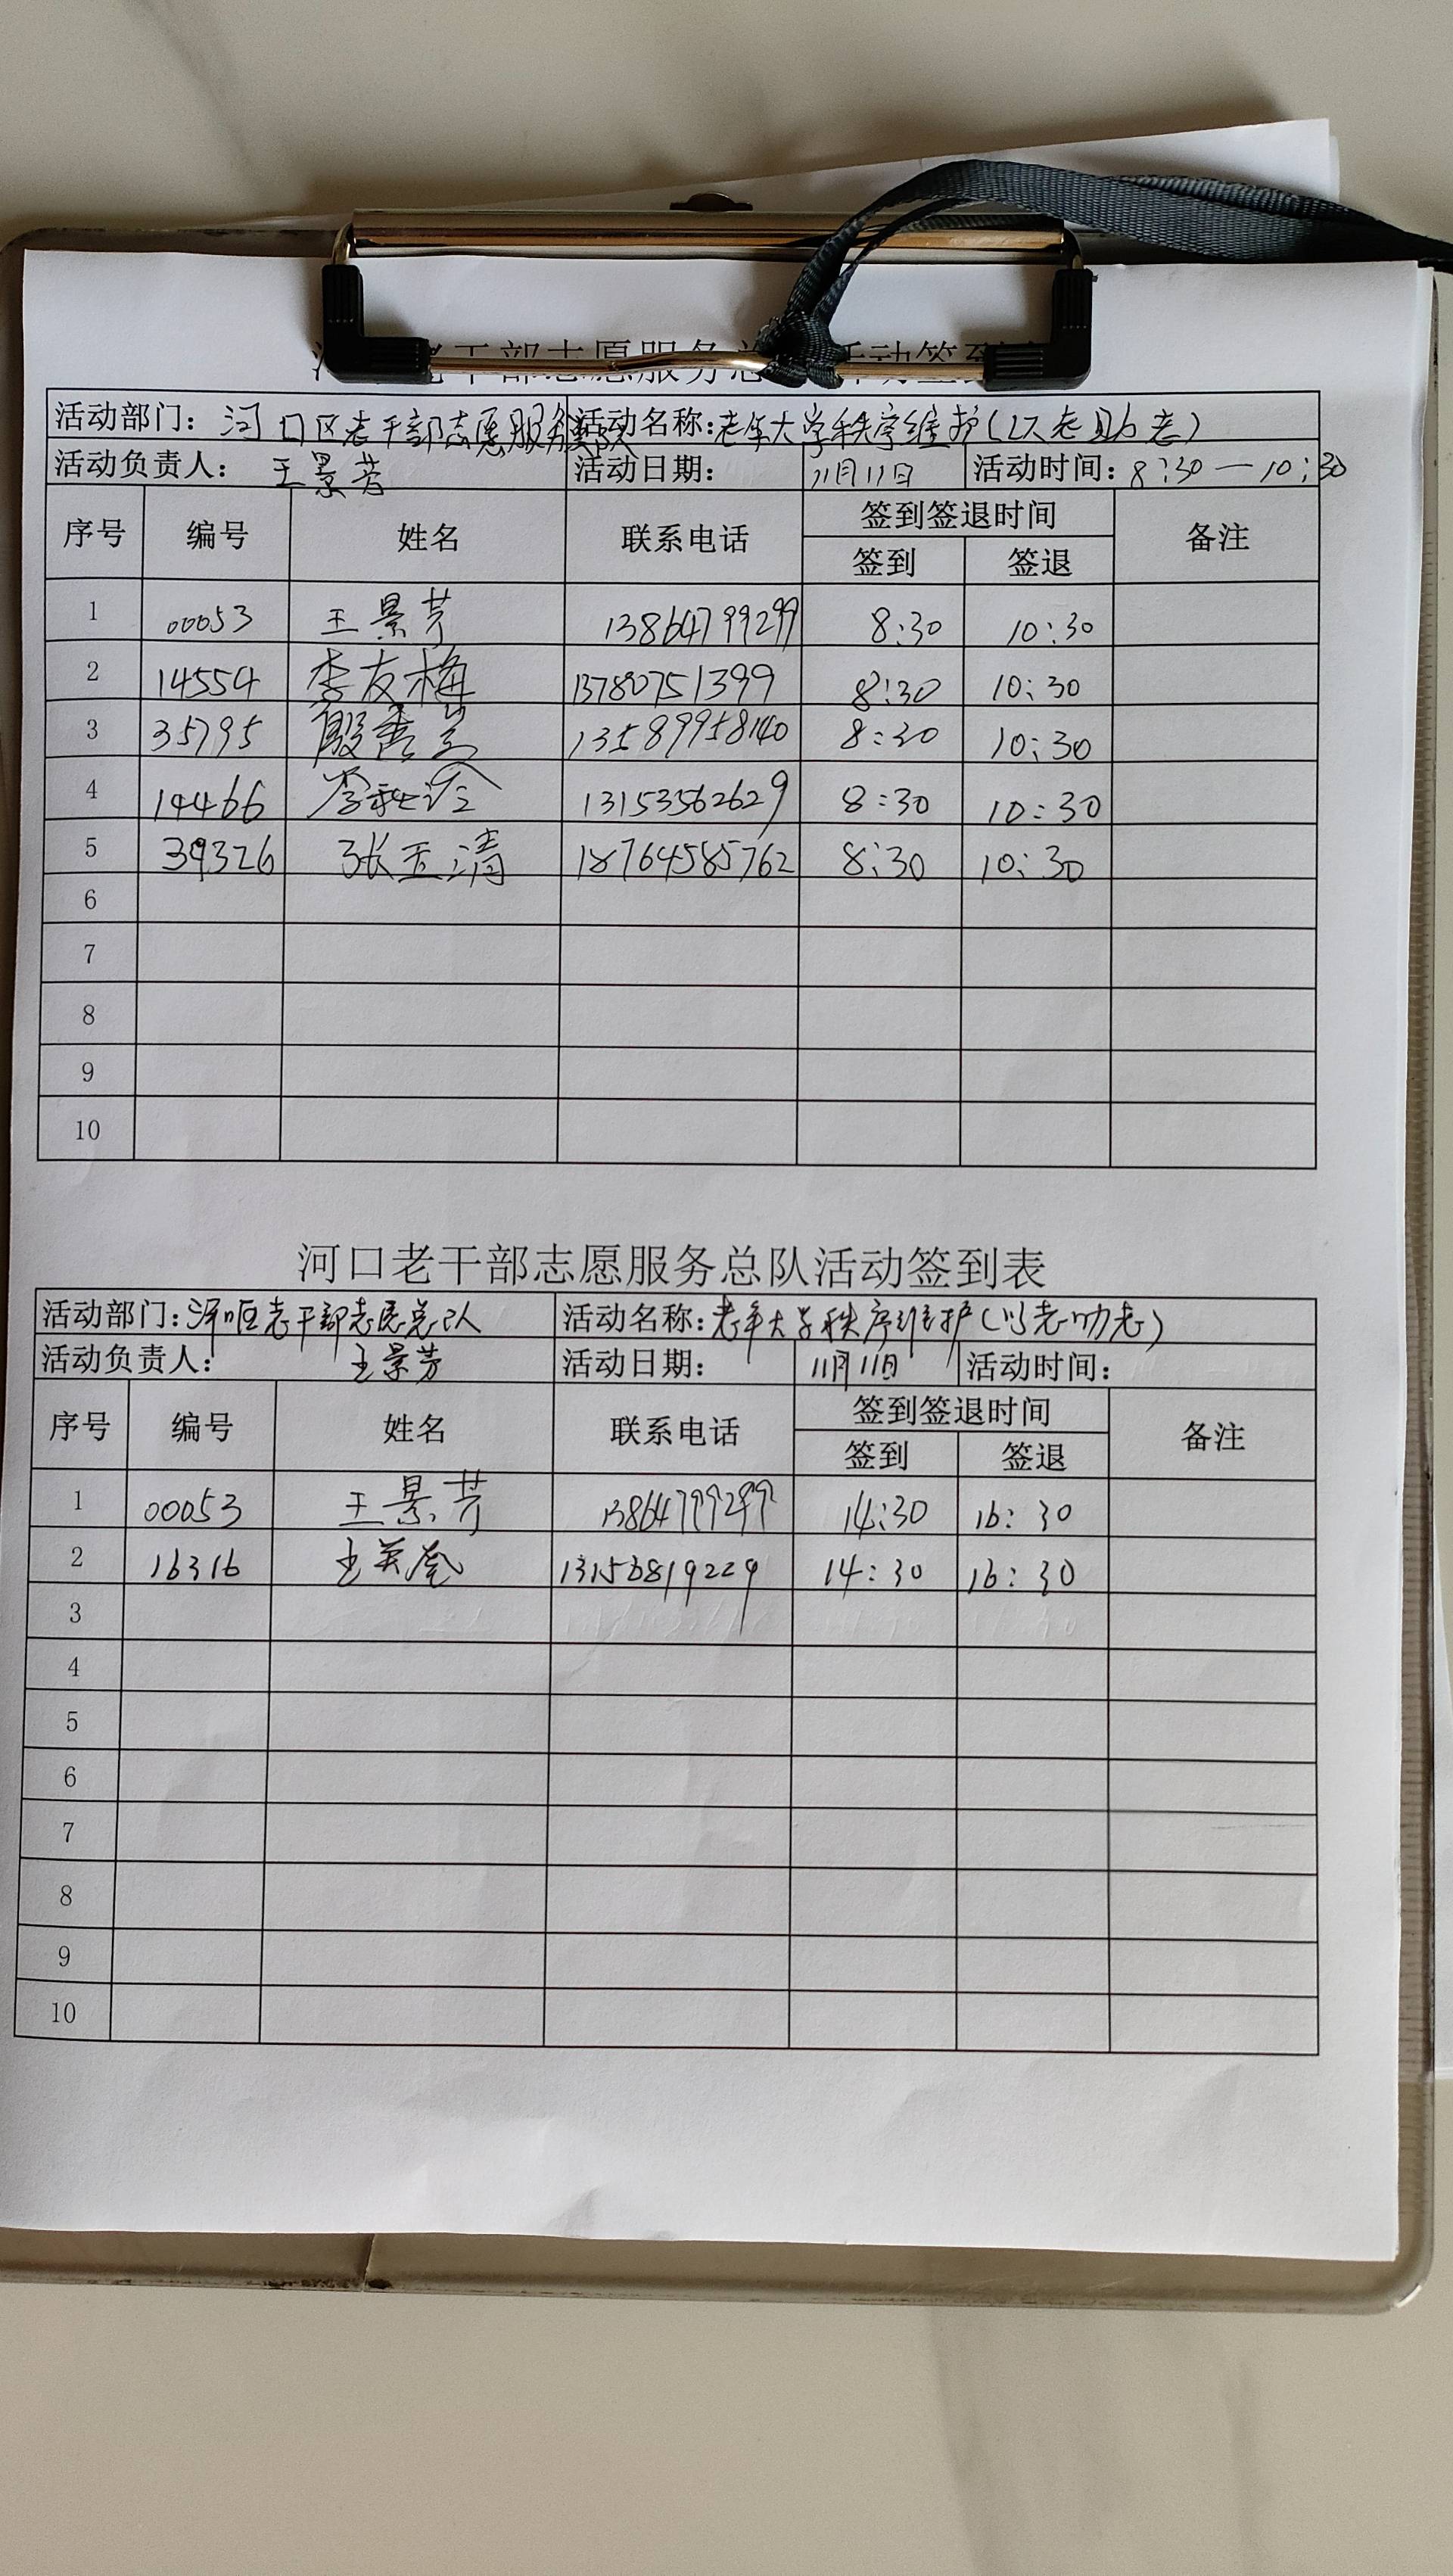 河口老干部志愿服务总队活动签到表
活动部门：河口区老干部志愿服务总队 活动名称：老年大学秩序维护（以老助老）
活动负责人： 王景芳 活动日期： 11月11日 活动时间：8:30—10:30
序号 编号 姓名 联系电话 签到签退时间 备注
签到 签退
1 00053 王景芳 13864799299 8:30 10:30
2 14554 李友梅 13780751399 8:30 10:30
3 35795 殷秀兰 13589958140 8:30 10:30
4 14466 13153562629 8:30 10:30
5 39326 张玉清 18764585762 8:30 10:30
6
7
8
9
10
河口老干部志愿服务总队活动签到表
活动部门：河口区老干部志愿总队 活动名称：老年大学秩序维护（以老助老）
活动负责人： 王景芳 活动日期： 11月11日 活动时间：
序号 编号 姓名 联系电话 签到签退时间 备注
签到 签退
1 00053 王景芳 13864799299 14:30 16:30
2 16316 王英凤 14:30 16:30
3
4
5
6
7
8
9
10